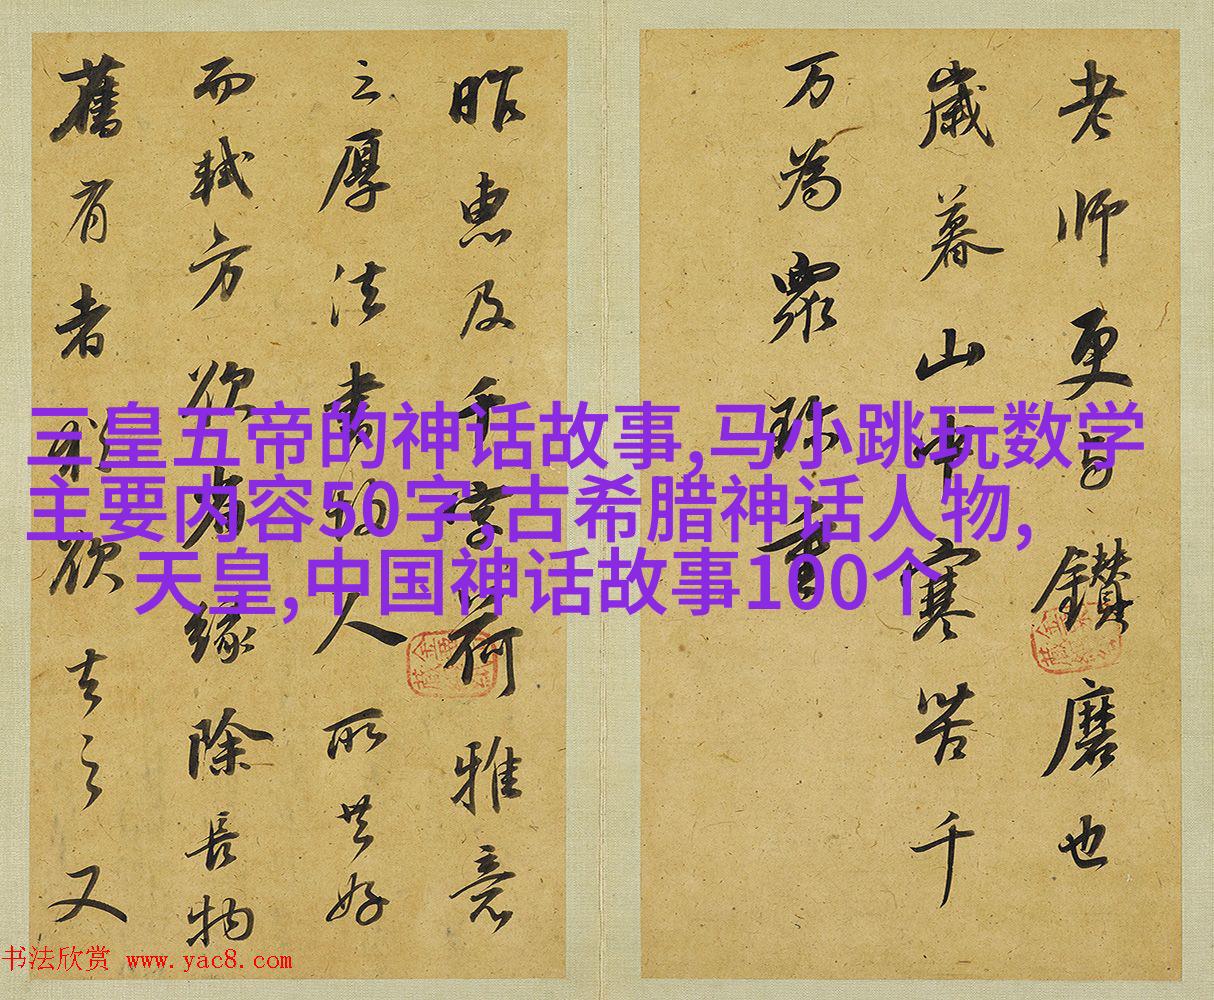 老师更鑽磨也
歲暮山中寒苦千
万為眾珍重
昨惠及千字荷雅意
之厚法書固人所共好
而軾方欲省緣除長物
舊有者猶欲去之又
三皇五帝的神话故事,马小跳玩数学
主要内容50字,古希腊神话人物,
天皇,中国神话故事100个
书法欣赏 www.yac8.com